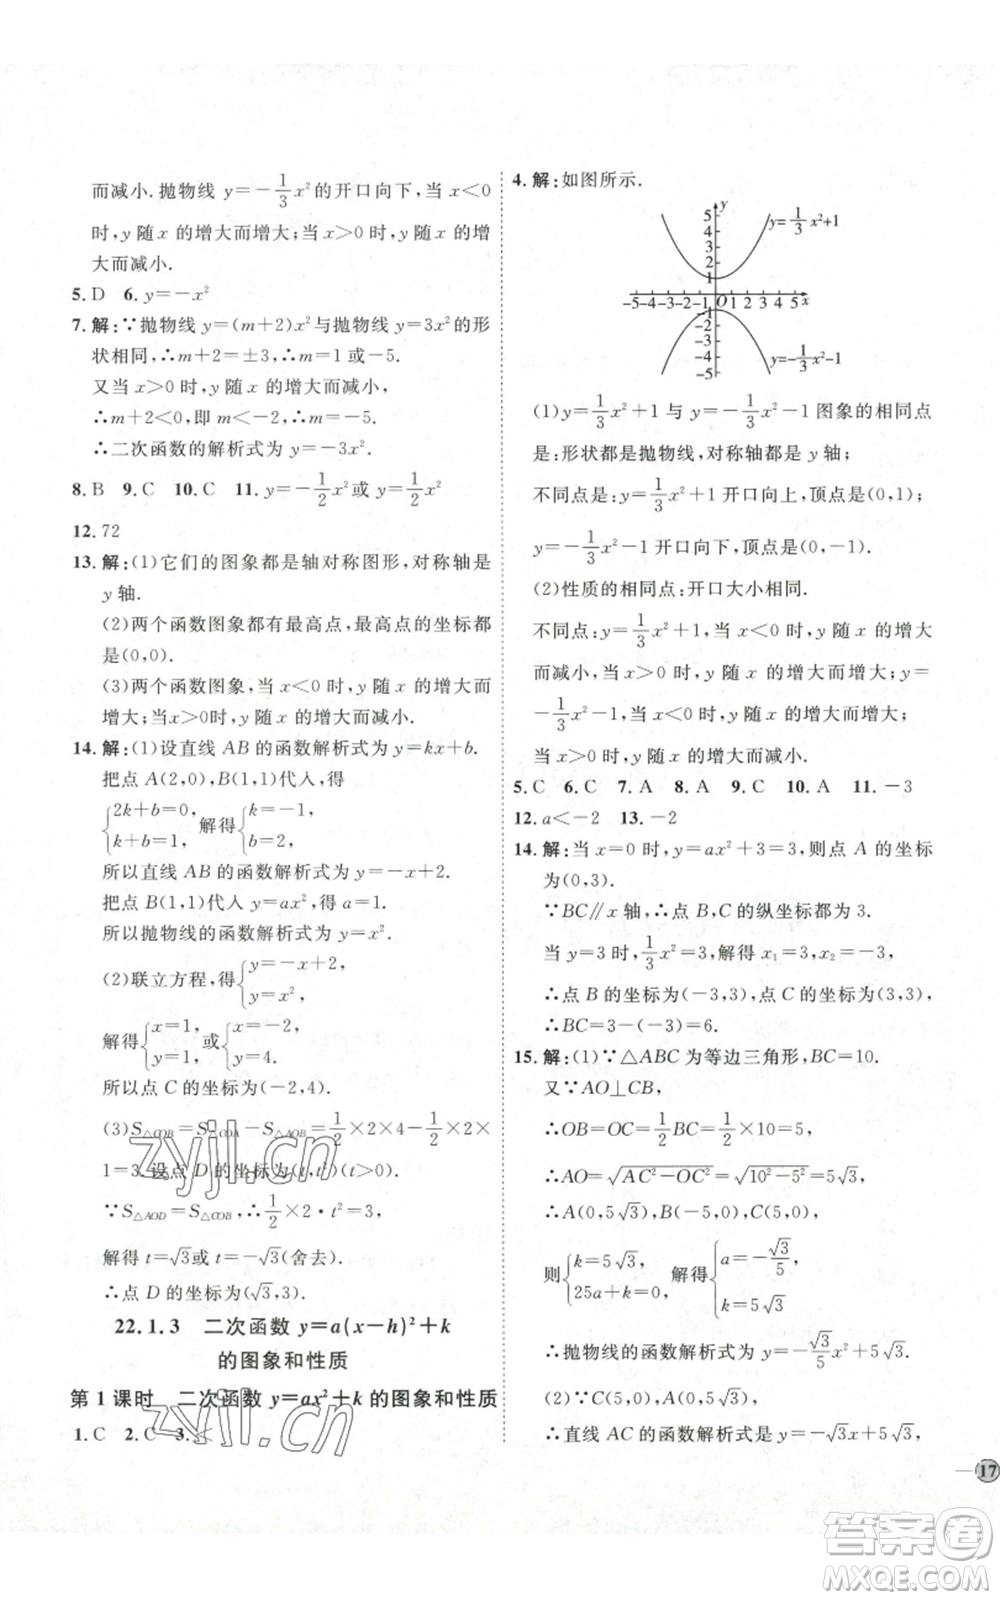 而减小.抛物线 y=-1/3x²的开口向下,当 x<0
时,y 随 x 的增大而增大;当 x>0 时,y 随 x 的增
大而减小.
5. D 6. y=-x²
7. 解:∵抛物线 y=(m+2)x²与抛物线 y=3x²的形
状相同,∴m+2=±3,∴m=1或-5.
又当 x>0 时,y 随 x 的增大而减小,
∴m+2<0,即 m<-2,∴m=-5.
∴二次函数的解析式为 y=-3x².
8. B 9. C 10. C 11. y=-1/2x²或 y=1/2x²
12. 72
13. 解:(1)它们的图象都是轴对称图形,对称轴是
y 轴.
(2)两个函数图象都有最高点,最高点的坐标都
是(0,0).
(3)两个函数图象,当 x<0 时,y 随 x 的增大而
增大;当x>0时,y 随 x 的增大而减小.
14. 解:(1)设直线 AB 的函数解析式为 y=kx+b.
把点 A(2,0),B(1,1)代入,得
{2k+b=0, k+b=1, 解得{k=-1, b=2.
所以直线 AB 的函数解析式为 y=-x+2.
把点 B(1,1)代入 y=ax²,得 a=1.
所以抛物线的函数解析式为 y=x².
(2)联立方程,得{y=-x+2, y=x²,
解得{x=1, y=1,或{x=-2, y=4.
所以点 C 的坐标为(-2,4).
(3)S△COB=S△COA-S△AOB=1/2×2×4-1/2×2×
1=3.设点 D 的坐标为(t,t²)(t>0).
∵S△AOD=S△COB,∴1/2×2·t²=3,
解得 t=√3或 t=-√3(舍去).
∴点 D 的坐标为(√3,3).
22.1.3 二次函数 y=a(x-h)²+k
的图象和性质
第 1 课时 二次函数 y=ax²+k 的图象和性质
1. C 2. C 3.
zyjl.cn
zyjl.cn
4. 解:如图所示.
y
5
4
3
2
1
y=1/3x²+1
-5-4-3-2-1 O 1 2 3 4 5 x
-1
-2
-3
-4
-5
y=-1/3x²-1
(1)y=1/3x²+1 与 y=-1/3x²-1图象的相同点
是:形状都是抛物线,对称轴都是 y 轴;
不同点是:y=1/3x²+1 开口向上,顶点是(0,1);
y=-1/3x²-1 开口向下,顶点是(0,-1).
(2)性质的相同点:开口大小相同.
不同点:y=1/3x²+1,当 x<0 时,y 随 x 的增大
而减小,当 x>0 时,y 随 x 的增大而增大;y=
-1/3x²-1,当 x<0 时,y 随 x 的增大而增大,
当 x>0 时,y 随 x 的增大而减小.
5. C 6. C 7. A 8. A 9. C 10. A 11. -3
12. a<-2 13. -2
14. 解:当 x=0 时,y=ax²+3=3,则点 A 的坐标
为(0,3).
∵BC∥x 轴,∴点 B,C 的纵坐标都为 3.
当 y=3 时,1/3x²=3,解得 x₁=3,x₂=-3,
∴点 B 的坐标为(-3,3),点 C 的坐标为(3,3),
∴BC=3-(-3)=6.
15. 解:(1)∵△ABC 为等边三角形,BC=10.
又∵AO⊥CB,
∴OB=OC=1/2BC=1/2×10=5,
∴AO=√AC²-OC²=√10²-5²=5√3,
∴A(0,5√3),B(-5,0),C(5,0),
则{k=5√3, 25a+k=0, 解得{a=-√3/5, k=5√3,
∴抛物线的函数解析式为 y=-√3/5x²+5√3.
(2)∵C(5,0),A(0,5√3),
∴直线 AC 的函数解析式是 y=-√3x+5√3,
17
答案圈
MXQE.COM